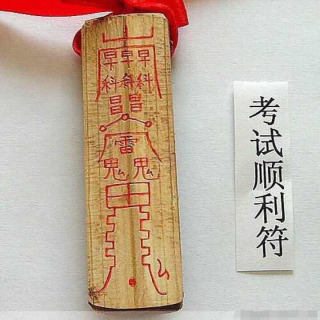 早早早
科 科
昌昌
雷
鬼 鬼
考试顺利符